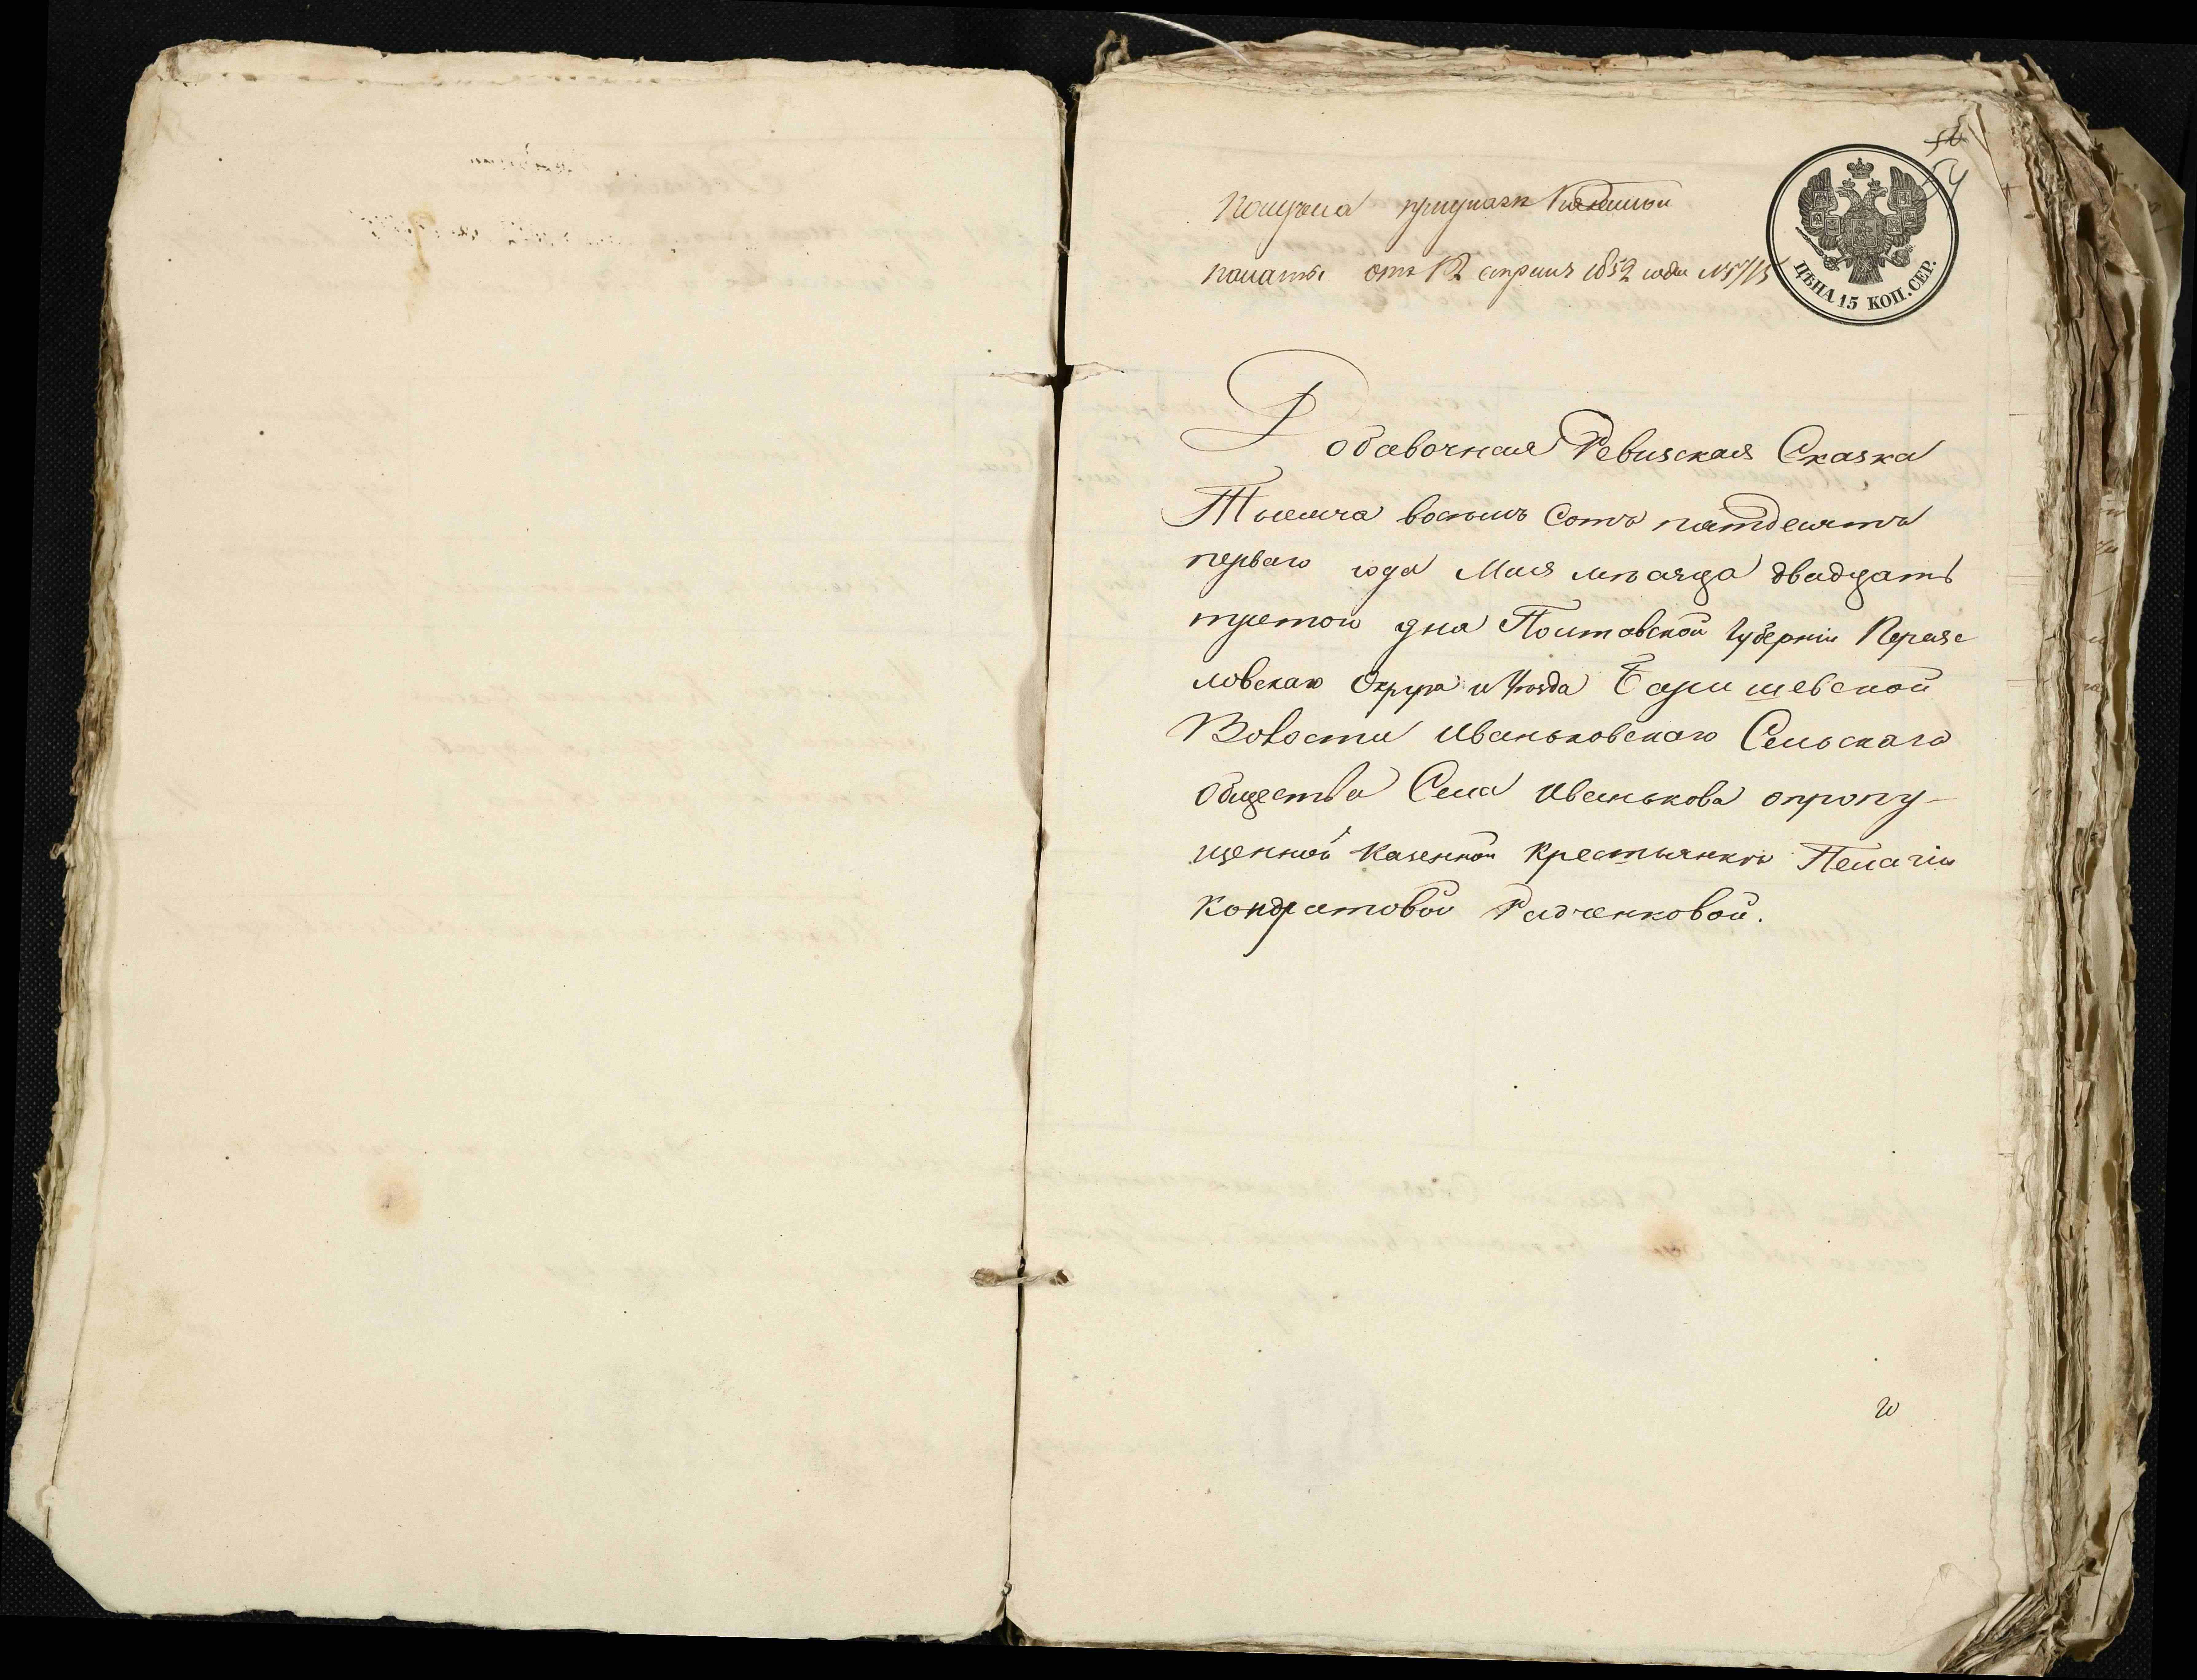 54
Получена приуказе Казенной
палаты отъ 12 апреля 1852 года №
ЦѢНА 15 КОП. СЕР.
Добавочная Ревизская Сказка
Тысяча восемь Сотъ пятдесятъ
перваго года Мая мѣсяца двадцать
третои дня Полтавской Губерніи Переяс
ловскаго Округа и Уѣзда Баришевской
Волости Иваньковскаго Сельскаго
общества Села Иванькова опропу-
щенной казенной крестьянкѣ Пелагіи
Кондратовой Радченковой.